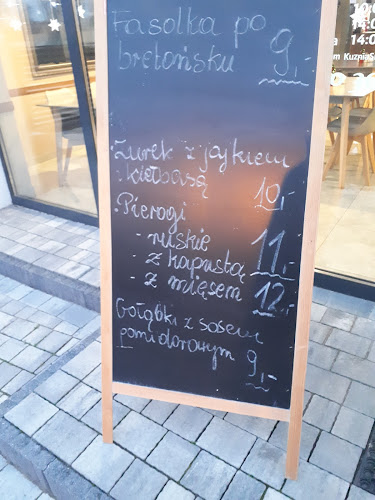 Fasolka po
bretońsku 9,-
Żurek z jajkiem
i kiełbasą 10,-
Pierogi
- ruskie 11,-
- z kapustą
- z mięsem 12,-
Gołąbki z sosem
pomidorowym 9,-
14:0
14:0
KuzniaS